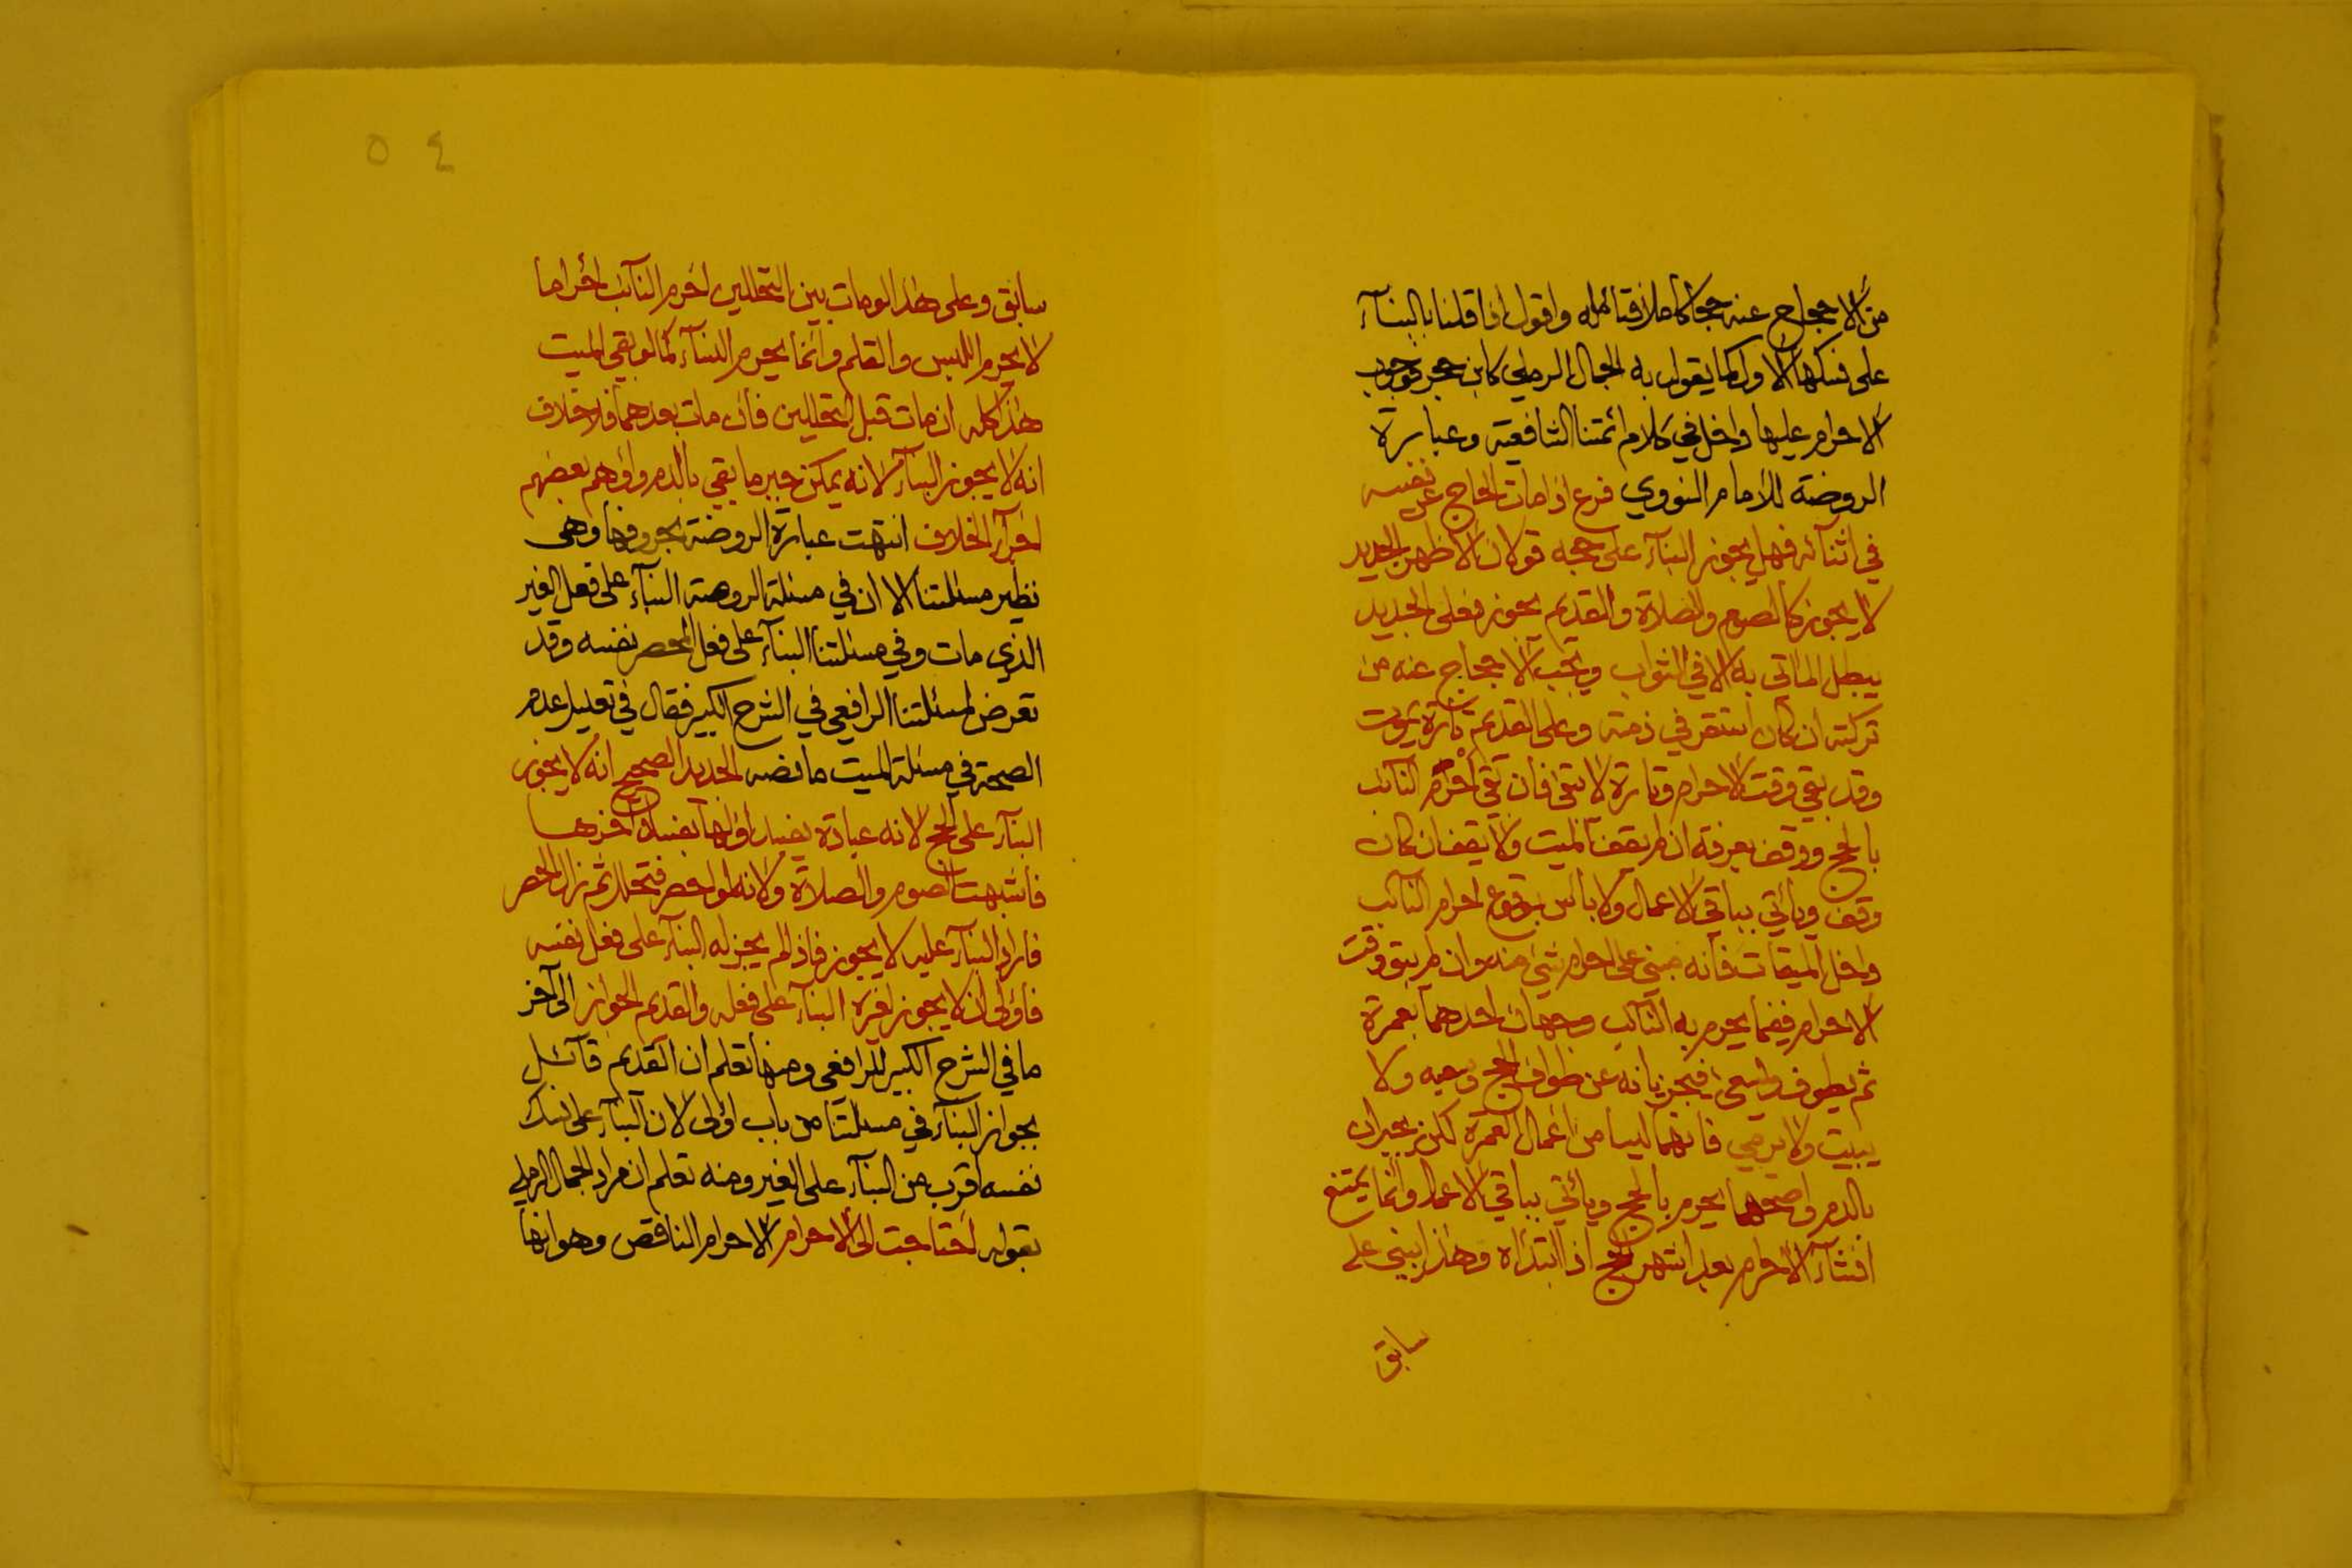 من الاحجاج عنه حجا كاملا فتامله واقول اذا قلنا بالبنآء
على نسكها الاول كما يقول به الجمال الرملي كابن حجر فوجوب
الاحرام عليها داخل في كلام ائمتنا الشافعية وعبارة
الروضة للامام النووي فرع اذا مات الحاج عن نفسه
في اثنائه فهل يجوز البنآء على حجه قولان الاظهر الجديد
لا يجوز كالصوم والصلاة والقديم يجوز فعلى الجديد
يبطل الماتي به الا في الثواب ويجب الاحجاج عنه من
تركته ان كان استقر في ذمته وعلى القديم تارة يموت
وقد بقي وقت الاحرام وتارة لا يبقى فان بقي احرم النائب
بالحج ووقف بعرفة ان لم يقف الميت ولا يقف ان كان
وقف ويأتي بباقي الاعمال ولا باس بوقوع احرام النائب
داخل الميقات فانه مبني على احرام شيئ منه وان لم يبق وقت
الاحرام ففيما يحرم به النائب وجهان احدهما بعمرة
ثم يطوف ويسعى فيجزيانه عن طواف الحج وسعيه ولا
يبيت ولا يرمي فانهما ليسا من اعمال العمرة لكن يجبران
بالدم واصحهما يحرم بالحج ويأتي بباقي الاعمال وانما يمتنع
انشآء الاحرام بعد اشهر الحج اذا ابتدأه وهذا يبنى على
سابق
٥٤
سابق وعلى هذا لو مات بين التحللين احرم النآئب احراما
لا يحرم اللبس والقلم وانما يحرم النسآء كما لو بقي الميت
هذا كله ان مات قبل التحللين فان مات بعدهما فلا خلاف
انه لا يجوز البنآء لانه يمكن جبر ما بقي بالدم واوهم بعضهم
اجرآء الخلاف انتهت عبارة الروضة بحروفها وهي
نظير مسئلتنا الا ان في مسئلة الروضة البنآء على فعل الغير
الذي مات وفي مسئلتنا البنآء على فعل المحصر نفسه وقد
تعرض لمسئلتنا الرافعي في الشرح الكبير فقال في تعليل عدم
الصحة في مسئلة الميت ما نصه الجديد الصحيح انه لا يجوز
البنآء على الحج لانه عبادة يفسد اولها بفساد آخرها
فاشبهت الصوم والصلاة ولانه لو احصر فتحلل ثم زال الحصر
فاراد البنآء عليه لا يجوز فاذا لم يجز له البنآء على فعل نفسه
فاولى ان لا يجوز لغيره البنآء على فعله والقديم الجواز الى آخر
ما في الشرح الكبير للرافعي ومنها تعلم ان القديم قآئل
بجواز البنآء في مسئلتنا من باب اولى لان البنآء على نسك
نفسه اقرب من البنآء على الغير ومنه تعلم ان مراد الجمال الرملي
بقوله احتاجت الى الاحرام الاحرام الناقص وهو انها